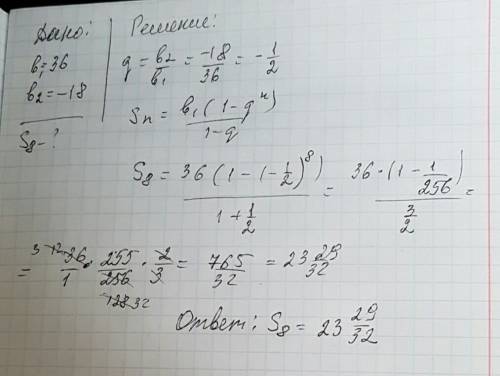 Дано:
b₁=36
b₂=-18
S₈-?
Решение:
q = b₂/b₁ = -18/36 = -1/2
Sn = b₁(1-qⁿ)/1-q
S₈ = 36(1-(-1/2)⁸)/1+1/2 = 36·(1-1/256)/3/2 =
= 3 12 36/1 · 255/256 128 32 · 2/3 = 765/32 = 23 29/32
Ответ: S₈ = 23 29/32